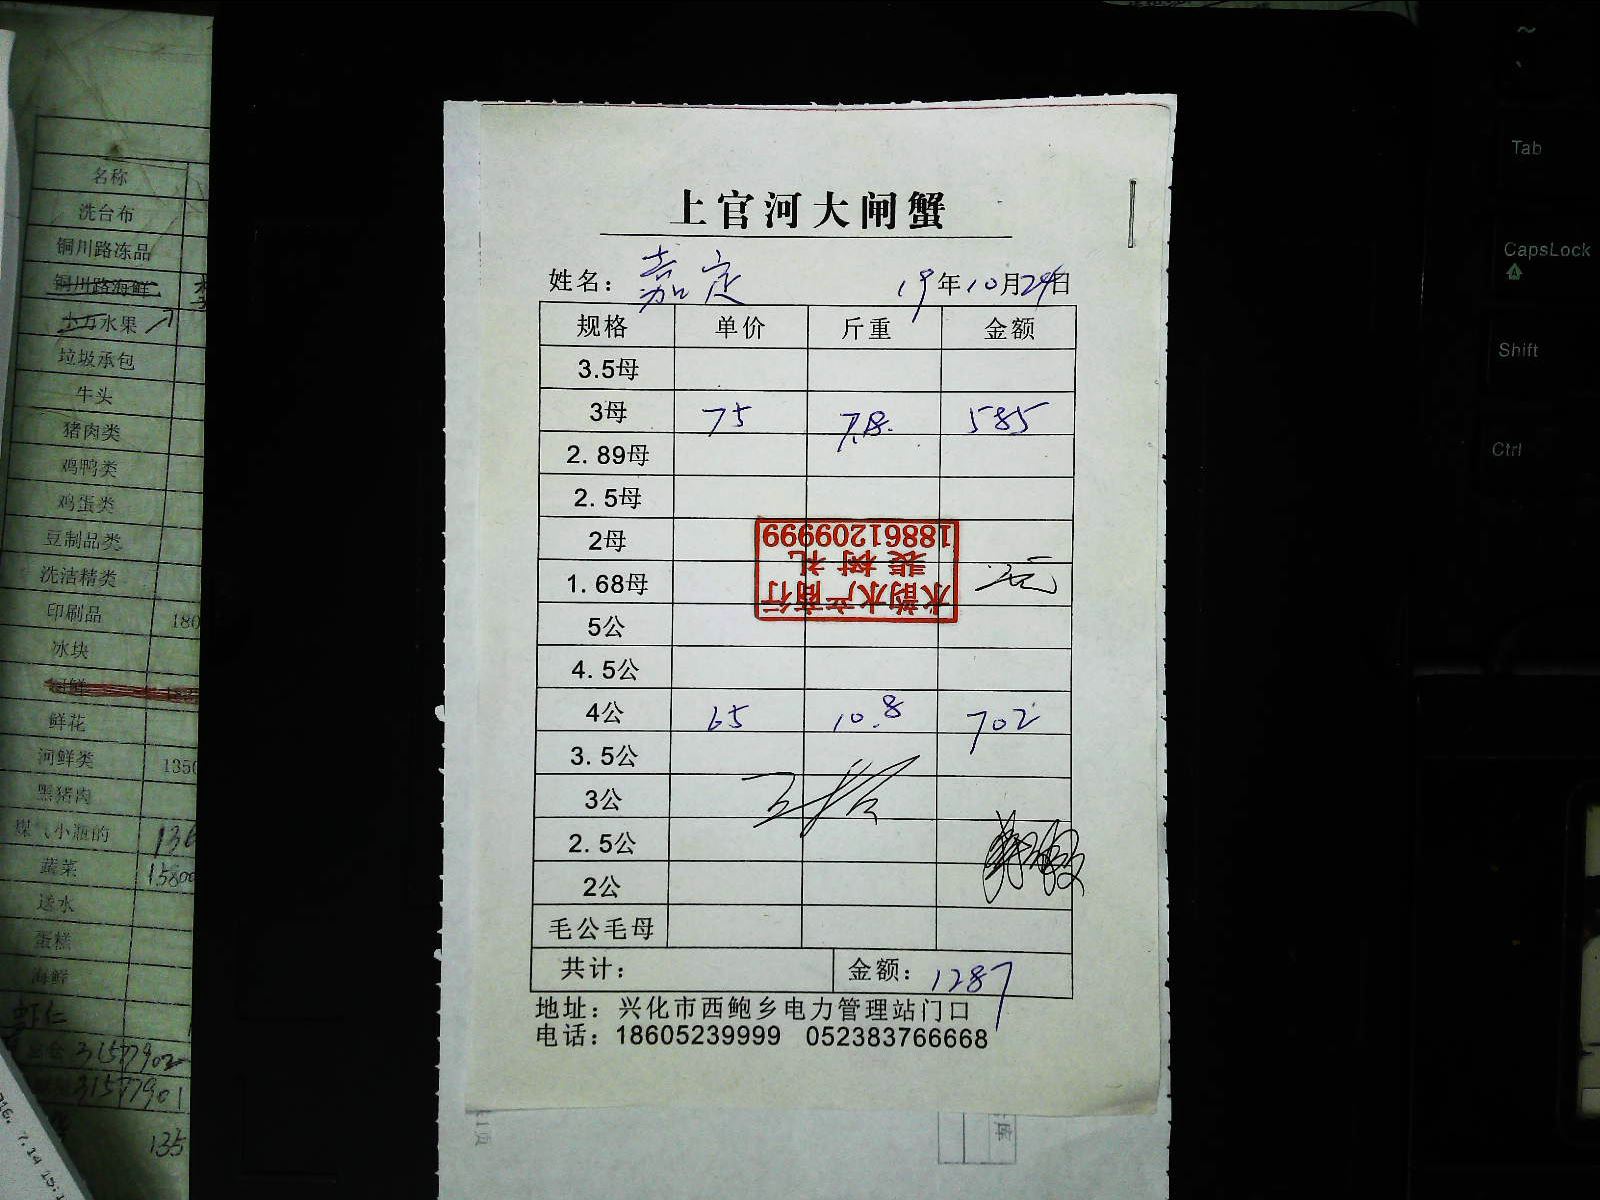 上官河大闸蟹
姓名：嘉定 19年10月29日
规格 单价 斤重 金额
3.5母
3母 75 7.8. 585
2.89母
2.5母
2母
1.68母
5公
4.5公
4公 65 10.8 702
3.5公
3公
2.5公
2公
毛公毛母
共计： 金额：1287
地址：兴化市西鲍乡电力管理站门口
电话：18605239999 052383766668
水韵水产商行
裴树礼
18861209999
名称
洗台布
铜川路冻品
铜川路海鲜
水果
垃圾承包
牛头
猪肉类
鸡鸭类
鸡蛋类
豆制品类
洗洁精类
印刷品 180
冰块
鲜花
河鲜类 1350
黑猪肉
煤气小瓶的 136
蔬菜 15800
送水
蛋糕
海鲜
虾仁
31577902
31577901
135
~
Tab
CapsLock
Shift
Ctrl